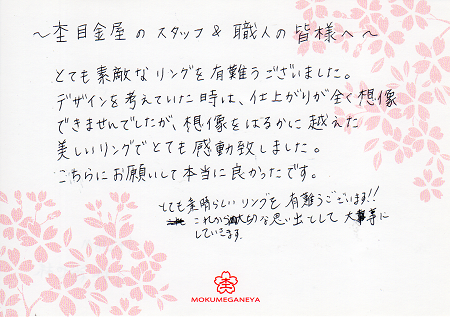 ～杢目金屋のスタッフ&職人の皆様へ～
とても素敵なリングを有難うございました。
デザインを考えていた時は、仕上がりが全く想像
できませんでしたが、想像をはるかに越えた
美しいリングでとても感動致しました。
こちらにお願いして本当に良かったです。
とても素晴らしいリングを有難うございます!!
これから大切な思い出として大事に
していきます
MOKUMEGANEYA